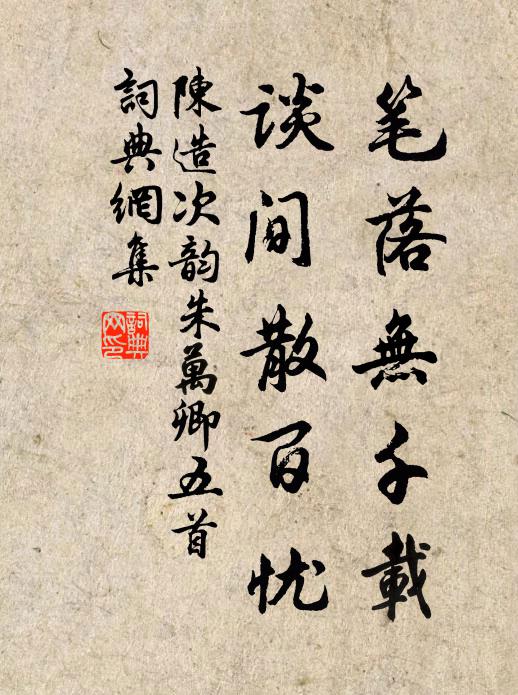 笔落無千載
谈间散百忧
陳造次韵朱萬卿五首
詞典網集
詞典網印